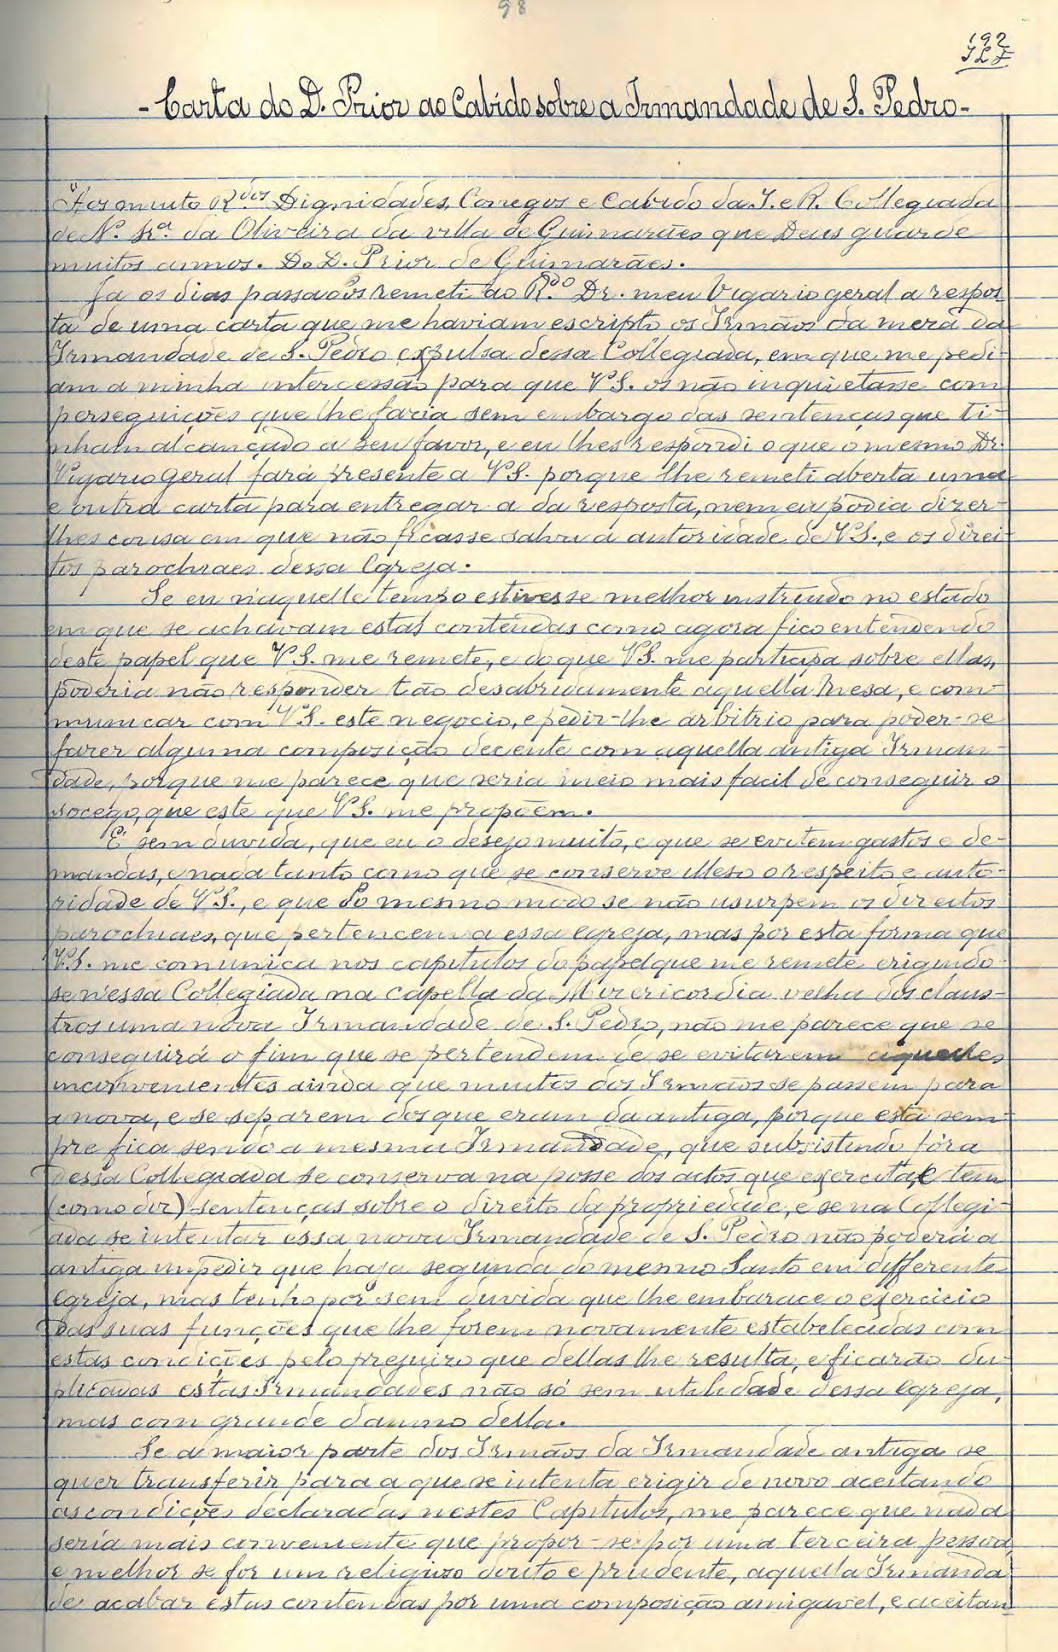 98
192
- Carta do D. Prior ao Cabido sobre a Irmandade de S. Pedro -
"Aos muito R.dos Dignidades, Conegos e Cabido da I. e R. Collegiada
de N. Sr.a da Oliveira da villa de Guimarães que Deus guarde
muitos annos. Do D. Prior de Guimarães.
Ja os dias passados remeti ao R.do Dr. meu Vigario geral a respos
ta de uma carta que me haviam escripto os Irmãos da meza da
Irmandade de S. Pedro expulsa dessa Collegiada, em que me pedi-
am a minha intercessão para que V.S. os não inquietasse com
perseguições que lhe faria sem embargo das sentenças que ti-
nham alcançado a seu favor, e eu lhes respondi o que o mesmo Dr.
Vigario geral fará presente a V.S. porque lhe remeti aberta uma
e outra carta para entregar a da resposta, nem eu podia dizer-
lhes cousa em que não ficasse salva a autoridade de V.S., e os direi-
tos parochiaes dessa Egreja.
Se eu n'aquelle tempo estivesse melhor instruido no estado
em que se achavam estas contendas como agora fico entendendo
deste papel que V.S. me remete, e do que V.S. me participa sobre ellas,
poderia não responder tão desabridamente aquella Meza, e com-
municar com V.S. este negocio, e pedir-lhe arbitrio para poder-se
fazer alguma composição decente com aquella antiga Irman-
dade, porque me parece que seria meio mais facil de conseguir o
socego, que este que V.S. me propõem.
É sem duvida, que eu o desejo muito, e que se evitem gastos e de-
mandas, e nada tanto como que se conserve illeso o respeito e auto-
ridade de V.S., e que do mesmo modo se não usurpem os direitos
parochiaes, que pertencem a essa Egreja, mas por esta forma que
V.S. me comunica nos capitulos do papel que me remete erigindo-
se n'essa Collegiada na capella da Mizericordia velha dos claus-
tros uma nova Irmandade de S. Pedro, não me parece que se
conseguirá o fim que se pertendem de se evitarem aquelles
inconvenientes ainda que muitos dos Irmãos se passem para
a nova, e se separem dos que eram da antiga, porque esta sem-
pre fica sendo a mesma Irmandade, que subsistindo fóra
dessa Collegiada se conserva na posse dos actos que exercita, e tem
(como diz) sentenças sobre o direito da propriedade, e se na Collegi-
ada se intentar essa nova Irmandade de S. Pedro não poderá a
antiga impedir que haja segunda do mesmo Santo em differente
Egreja, mas tenho por sem duvida que lhe embarace o exercicio
das suas funções que lhe forem novamente estabelecidas com
estas condições pelo prejuizo que dellas lhe resulta, e ficarão du-
plicadas estas Irmandades não só sem utilidade dessa Egreja,
mas com grande damno della.
Se a maior parte dos Irmãos da Irmandade antiga se
quer transferir para a que se intenta erigir de novo aceitando
as condições declaradas nestes Capitulos, me parece que nada
seria mais conveniente que propor-se por uma terceira pessoa,
e melhor se for um religioso douto e prudente, aquella Irmanda
de acabar estas contendas por uma composição amigavel, e aceitan